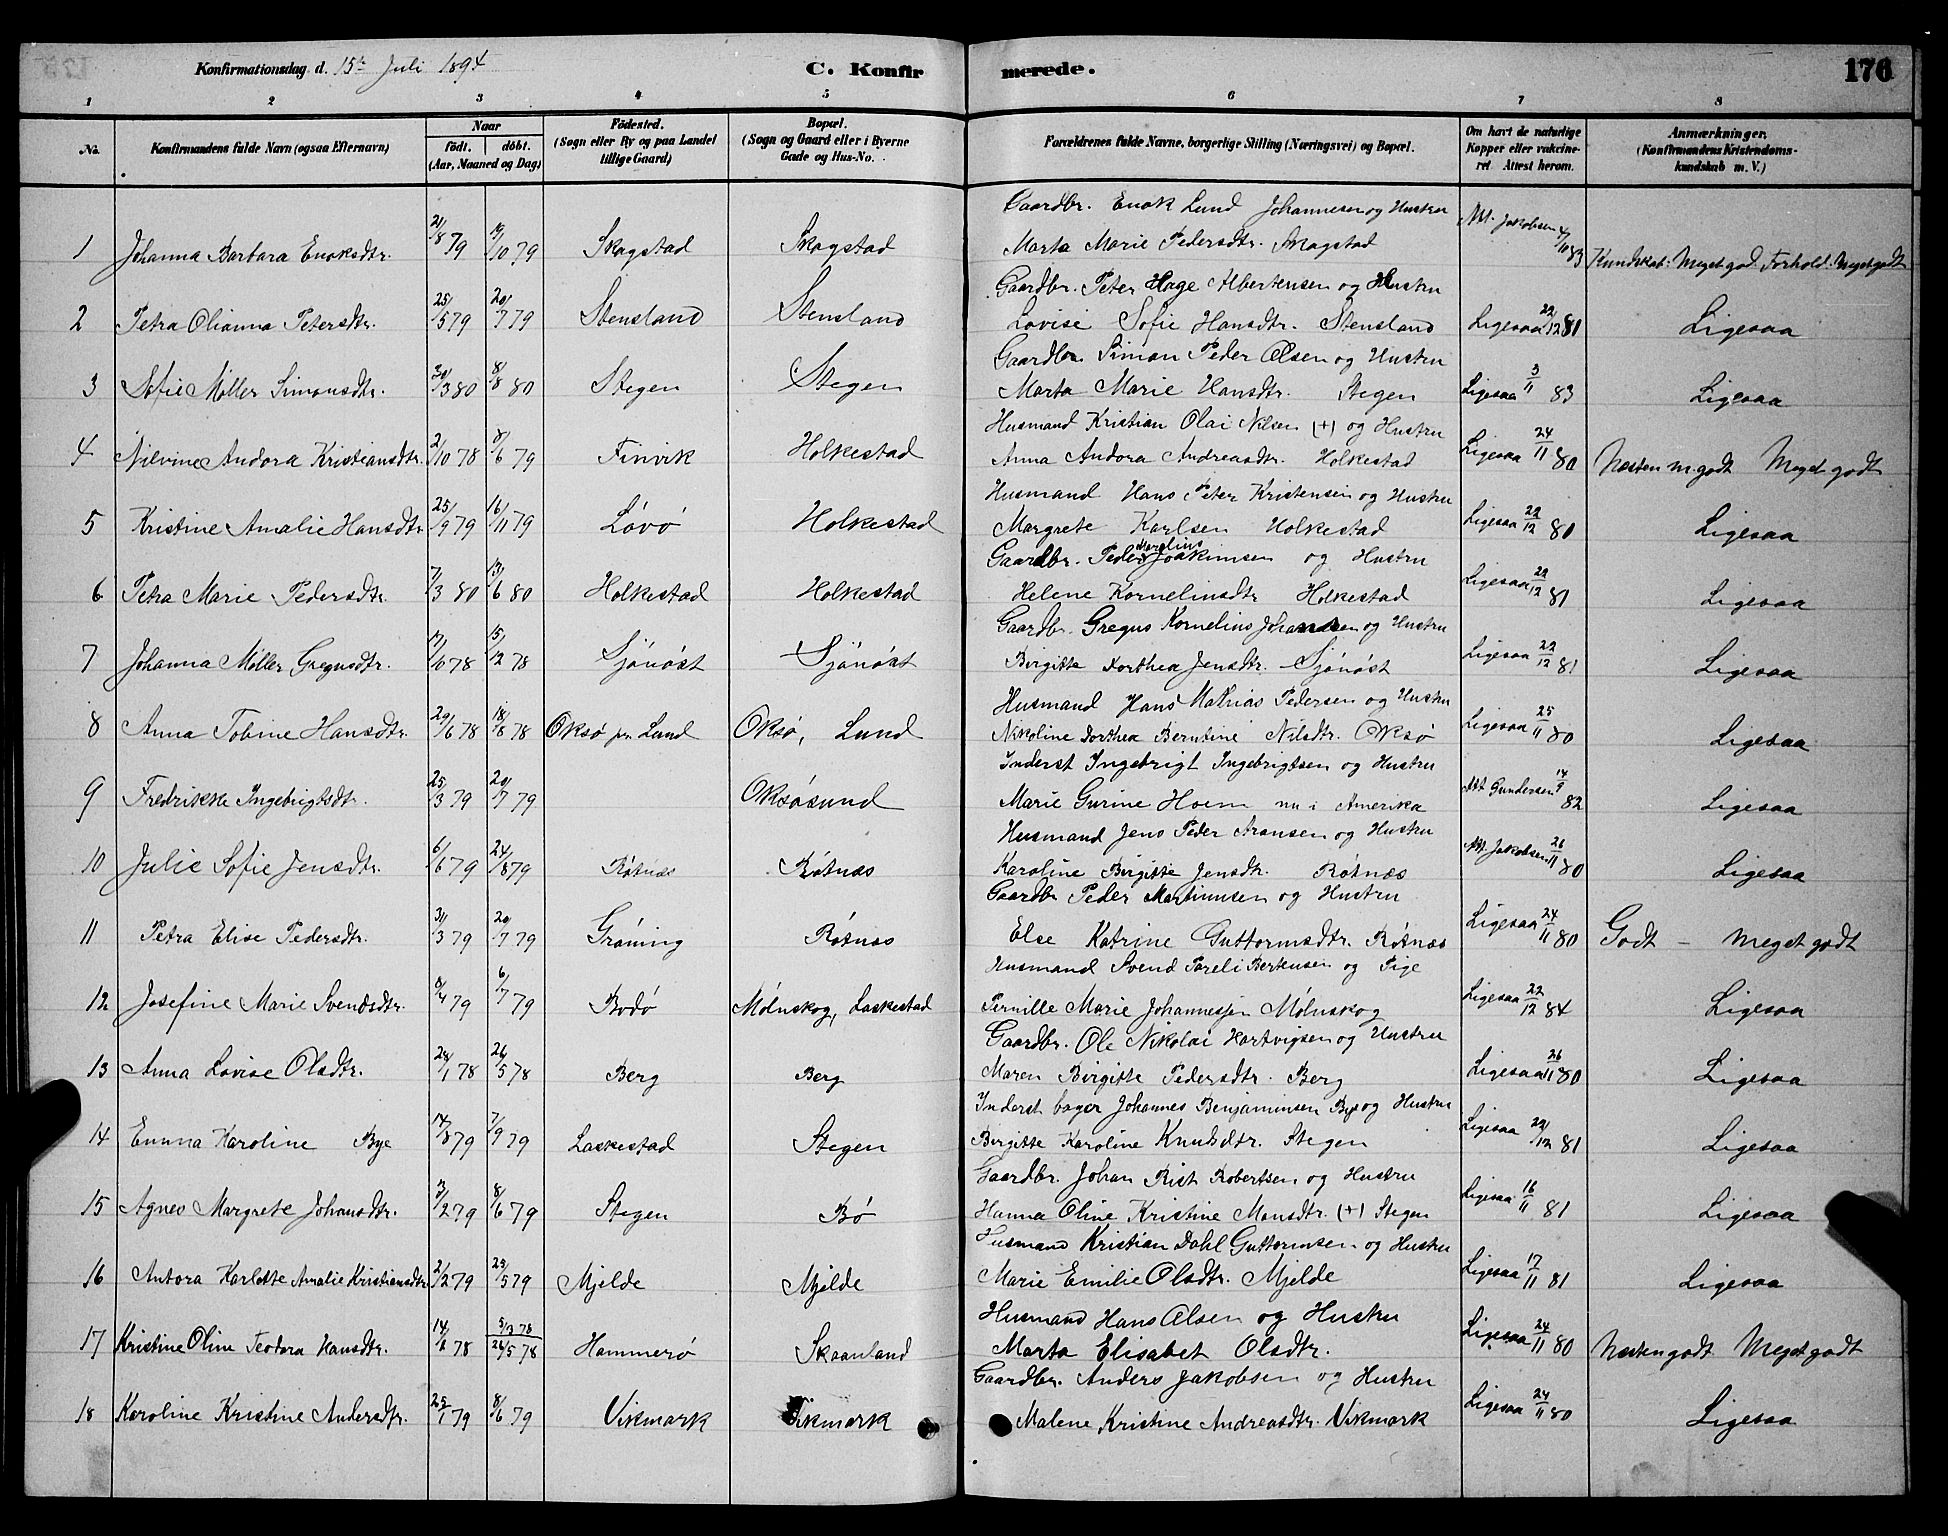 Konfirmationsdag d. 15de Juli 1894 C. Konfirmerede. 176
1 2 3 4 5 6 7 8
No. Konfirmandens fulde Navn (ogsaa Efternavn) Naar födt. döbt. (Aar, Maaned og Dag) Födested. (Sogn eller By og paa Landet tillige Gaard) Bopæl. (Sogn og Gaard eller i Byerne Gade og Hus-No. Forældrenes fulde Navne, borgerlige Stilling (Næringsvei) og Bopæl. Om havt de naturlige Kopper eller vakcineret. Attest herom. Anmærkninger. (Konfirmandens Kristendomskundskab m. V.)
Gaardbr. Enok Lund Johannesen og Hustru
1 Johanna Barbara Enoksdtr. 21/8 79 19/10 79 Skagstad Skagstad Marta Marie Pedersdtr. Skagstad Att. Jakobsen 4/10 83 Kundskab: Meget god. Forhold: Meget godt
Gaardbr. Peter Hage Albertensen og Hustru
2 Petra Olianna Petersdtr. 25/5 79 20/7 79 Stensland Stensland Lovise Sofie Hansdtr. Stensland Ligesaa 22/12 81 Ligesaa
Gaardbr Simon Peder Olsen og Hustru
3 Sofie Möller Simonsdtr. 30/3 80 8/8 80 Stegen Stegen Marta Marie Hansdtr. Stegen Ligesaa 3/11 83 Ligesaa
Husmand Kristian Olai Nilsen (+) og Hustru
4 Nilvine Andora Kristiansdtr. 2/10 78 8/6 79 Finvik Holkestad Anna Andora Andreasdtr. Holkestad Ligesaa 24/11 80 Næsten m. godt Meget godt
Husmand Hans Peter Kristensen og Hustru
5 Kristine Amalie Hansdtr. 25/9 79 16/11 79 Lövö Holkestad Margrete Karlsen Holkestad Ligesaa 22/12 80 Ligesaa
Gaardbr. Peder Marelius Joakimsen og Hustru
6 Petra Marie Pedersdtr. 7/3 80 13/6 80 Holkestad Holkestad Helene Kornelinsdtr Holkestad Ligesaa 22/12 81 Ligesaa
Gaardbr. Gregus Kornelius Johansen og Hustru
7 Johanna Möller Gregusdtr. 15/12 78 Sjönöst Sjönöst Birgitte Dorthea Jensdtr. Sjönöst Ligesaa 22/12 81 Ligesaa
Husmand Hans Mathias Pedersen og Hustru
8 Anna Tobine Hansdtr. 29/6 78 18/8 78 Oksö pr. Lund Oksö, Lund Nikoline Dorthea Berntine Nilsdtr. Oksö Ligesaa 25/11 80 Ligesaa
Inderst Ingebrigt Ingebrigtsen og Hustru
9 Fredrikke Ingebrigtsdtr. 25/3 79 20/7 79 Oksösund Marie Gurine Hoem nu i Amerika Att Gundersen 14/9 82 Ligesaa
Husmand Jens Peder Aronsen og Hustru
10 Julie Sofie Jensdtr. 6/6 79 24/8 79 Rötnæs Rötnæs Karoline Birgitte Jensdtr. Rötnæs Att. Jakobsen 26/11 80 Ligesaa
Gaardbr Peder Martinusen og Hustru
11 Petra Elise Pedersdtr. 31/3 79 20/7 79 Gröning Rötnæs Else Katrine Guttormsdtr. Rötnæs Ligesaa 24/11 80 Godt – Meget godt
Husmand Svend Pareli Berteusen og Pige
12 Josefine Marie Svendsdtr. 8/4 79 6/7 79 Bodö Mölnskog, Laskestad Pernille Marie Johannessen Mölnskog Ligesaa 22/12 84 Ligesaa
Gaardbr. Ole Nikolai Hartvigsen og Hustru
13 Anna Lovise Olsdtr. 28/1 78 26/5 78 Berg Berg Maren Birgitte Pedersdtr. Berg Ligesaa 26/11 80 Ligesaa
Inderst bager Johannes Benjaminsen Bye og Hustru
14 Emma Karoline Bye 14/8 79 7/9 79 Laskestad Stegen Birgitte Karoline Knutsdtr. Stegen Ligesaa 22/12 81 Ligesaa
Gaardbr. Johan Rist Robertsen og Hustru
15 Agnes Margrete Johansdtr. 3/2 79 8/6 79 Stegen Bö Hanna Oline Kristine Monsdtr. (+) Stegen Ligesaa 16/11 81 Ligesaa
Husmand Kristian Dahl Guttormsen og Hustru
16 Antora Karlotte Amalie Kristiansdtr. 2/2 79 25/5 79 Mjelde Mjelde Marie Emilie Olsdtr. Mjelde Ligesaa 17/11 81 Ligesaa
Husmand Hans Olsen og Hustru
17 Kristine Oline Teodora Hansdtr. 14/2 78 5/3 78 26/5 78 Hammerö Skaanland Marta Elisabet Olsdtr. Ligesaa 24/11 80 Næsten godt. Meget godt
Gaardbr. Anders Jakobsen og Hustru
18 Karoline Kristine Andersdtr. 25/1 79 8/6 79 Vikmark Vikmark Malene Kristine Andreasdtr. Vikmark Ligesaa 24/11 80 Ligesaa